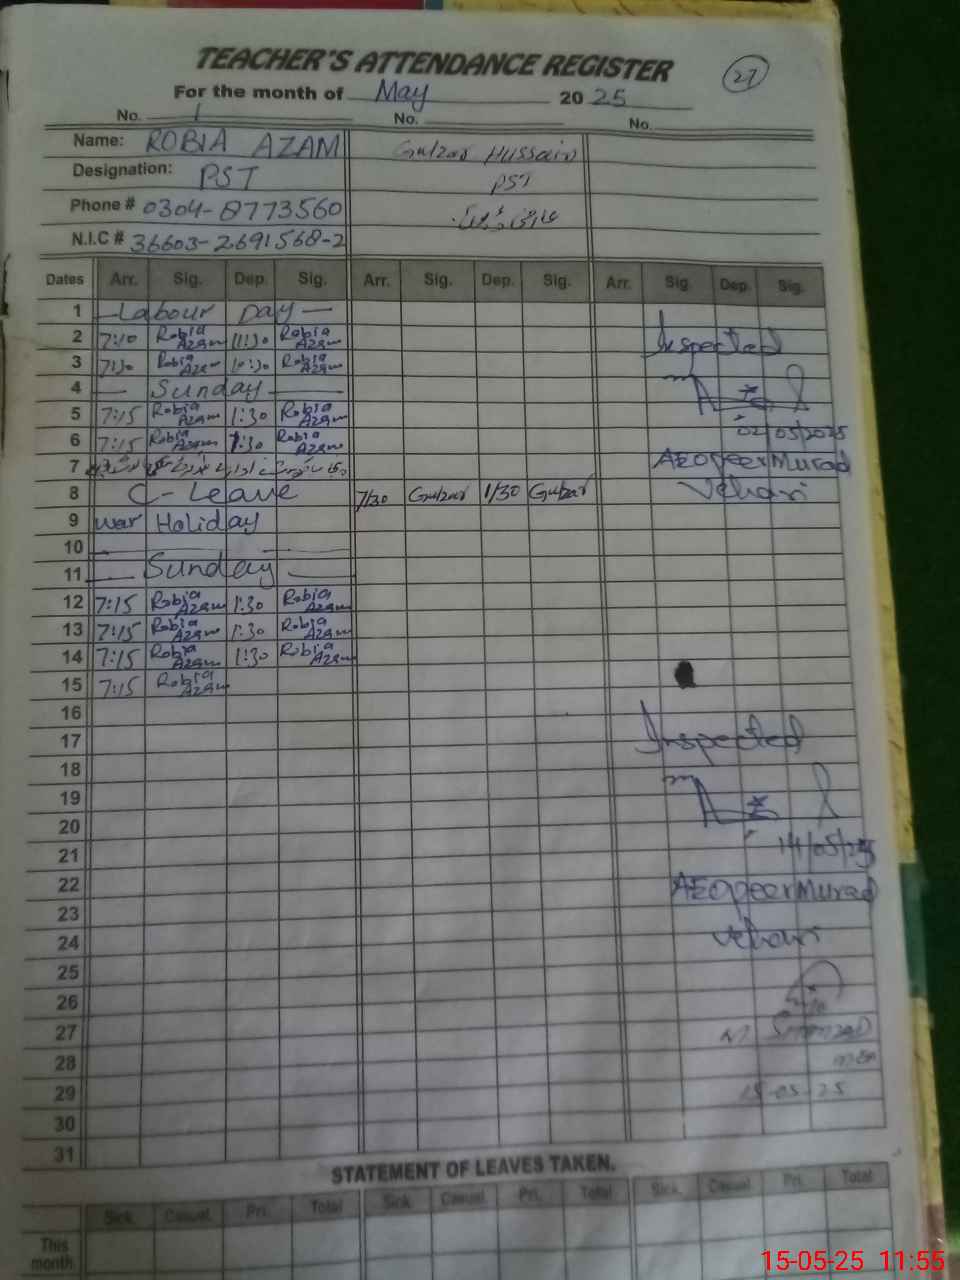 TEACHER'S ATTENDANCE REGISTER
27
For the month of May 2025
No. 1 No. No.
Name: ROBIA AZAM Gulzar Hussain
Designation: PST PST
Phone # 0304-8773560
N.I.C # 36603-2691568-2
Dates Arr. Sig. Dep. Sig. Arr. Sig. Dep. Sig. Arr. Sig. Dep. Sig.
1 Labour Day
2 7:10 Robia Azam 11:30 Robia Azam
3 7:30 Robia Azam 10:30 Robia Azam
Inspected
4 Sunday
5 7:15 Robia Azam 1:30 Robia Azam
6 7:15 Robia Azam 1:30 Robia Azam
02/05/2025
7
AEO Peer Murad
8 C-Leave 7/30 Gulzar 1/30 Gulzar
Vehari
9 War Holiday
10
11 Sunday
12 7:15 Robia Azam 1:30 Robia Azam
13 7:15 Robia Azam 1:30 Robia Azam
14 7:15 Robia Azam 1:30 Robia Azam
15 7:15 Robia Azam
16
17 Inspected
18
19
20
21 14/05/25
22 AEO Peer Murad
23
24 Vehari
25
26
27
28
29 15-05-25
30
31
STATEMENT OF LEAVES TAKEN.
Sick. Casual. Pri. Total Sick. Casual. Pri. Total Sick. Casual Pri. Total
This month
15-05-25 11:55